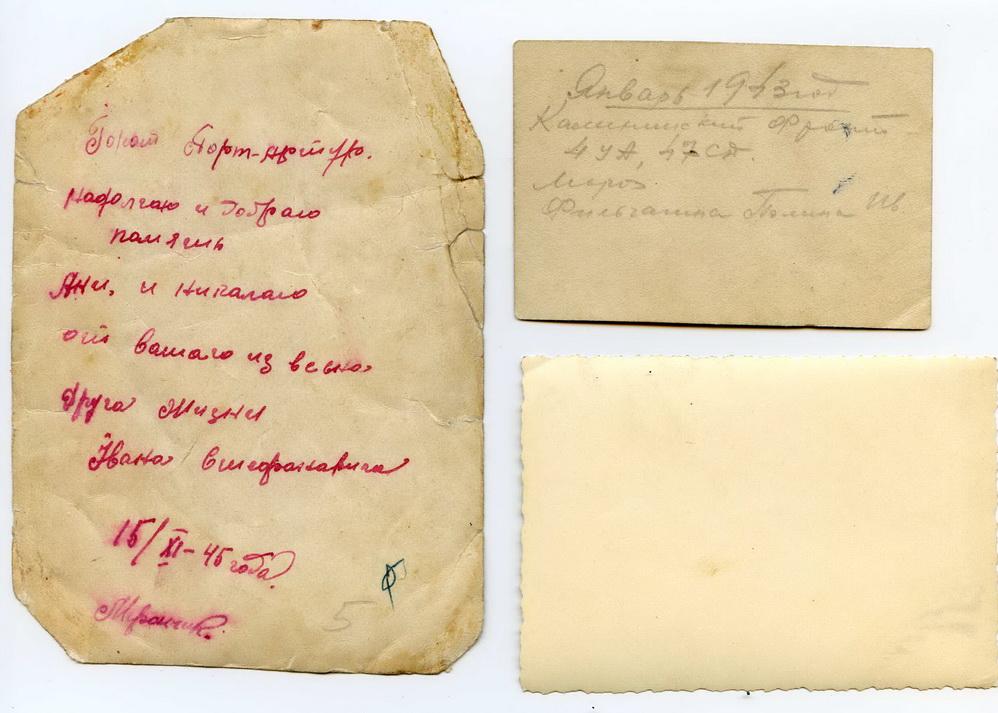 Город Порт-Артур.
Надолгаю и добраю
память
Ани, и Николаю
от вашаго из весна
Друга Жизни
Ивана Стефановича
15/XI-45 года
5
Январь 1943 год
Калининский фронт
4 УА, 47 СД.
Мороз
Фильчагина Полина Ив